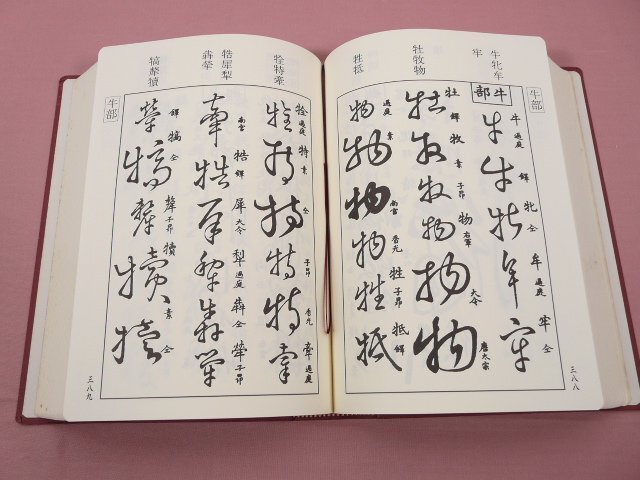 牛牝牟
牢
牡牧物
牲牴
牛部
牛部
牛 過庭
牝
牟 過庭
牢
牡
牧 素
子昂
物 右軍
大令
唐太宗
過庭
素
南宮
香光
牲 子昂
牴 鮮
三八八
牷特牽
牿犀犁
犇犖
犒犛犢
牛部
牷 過庭
特 素
子昂
香光
牽 過庭
南宮
牿 鮮
犀 大令
犁 過庭
犇
犖 子昂
鮮
犒
犛 子昂
犢
素
三八九